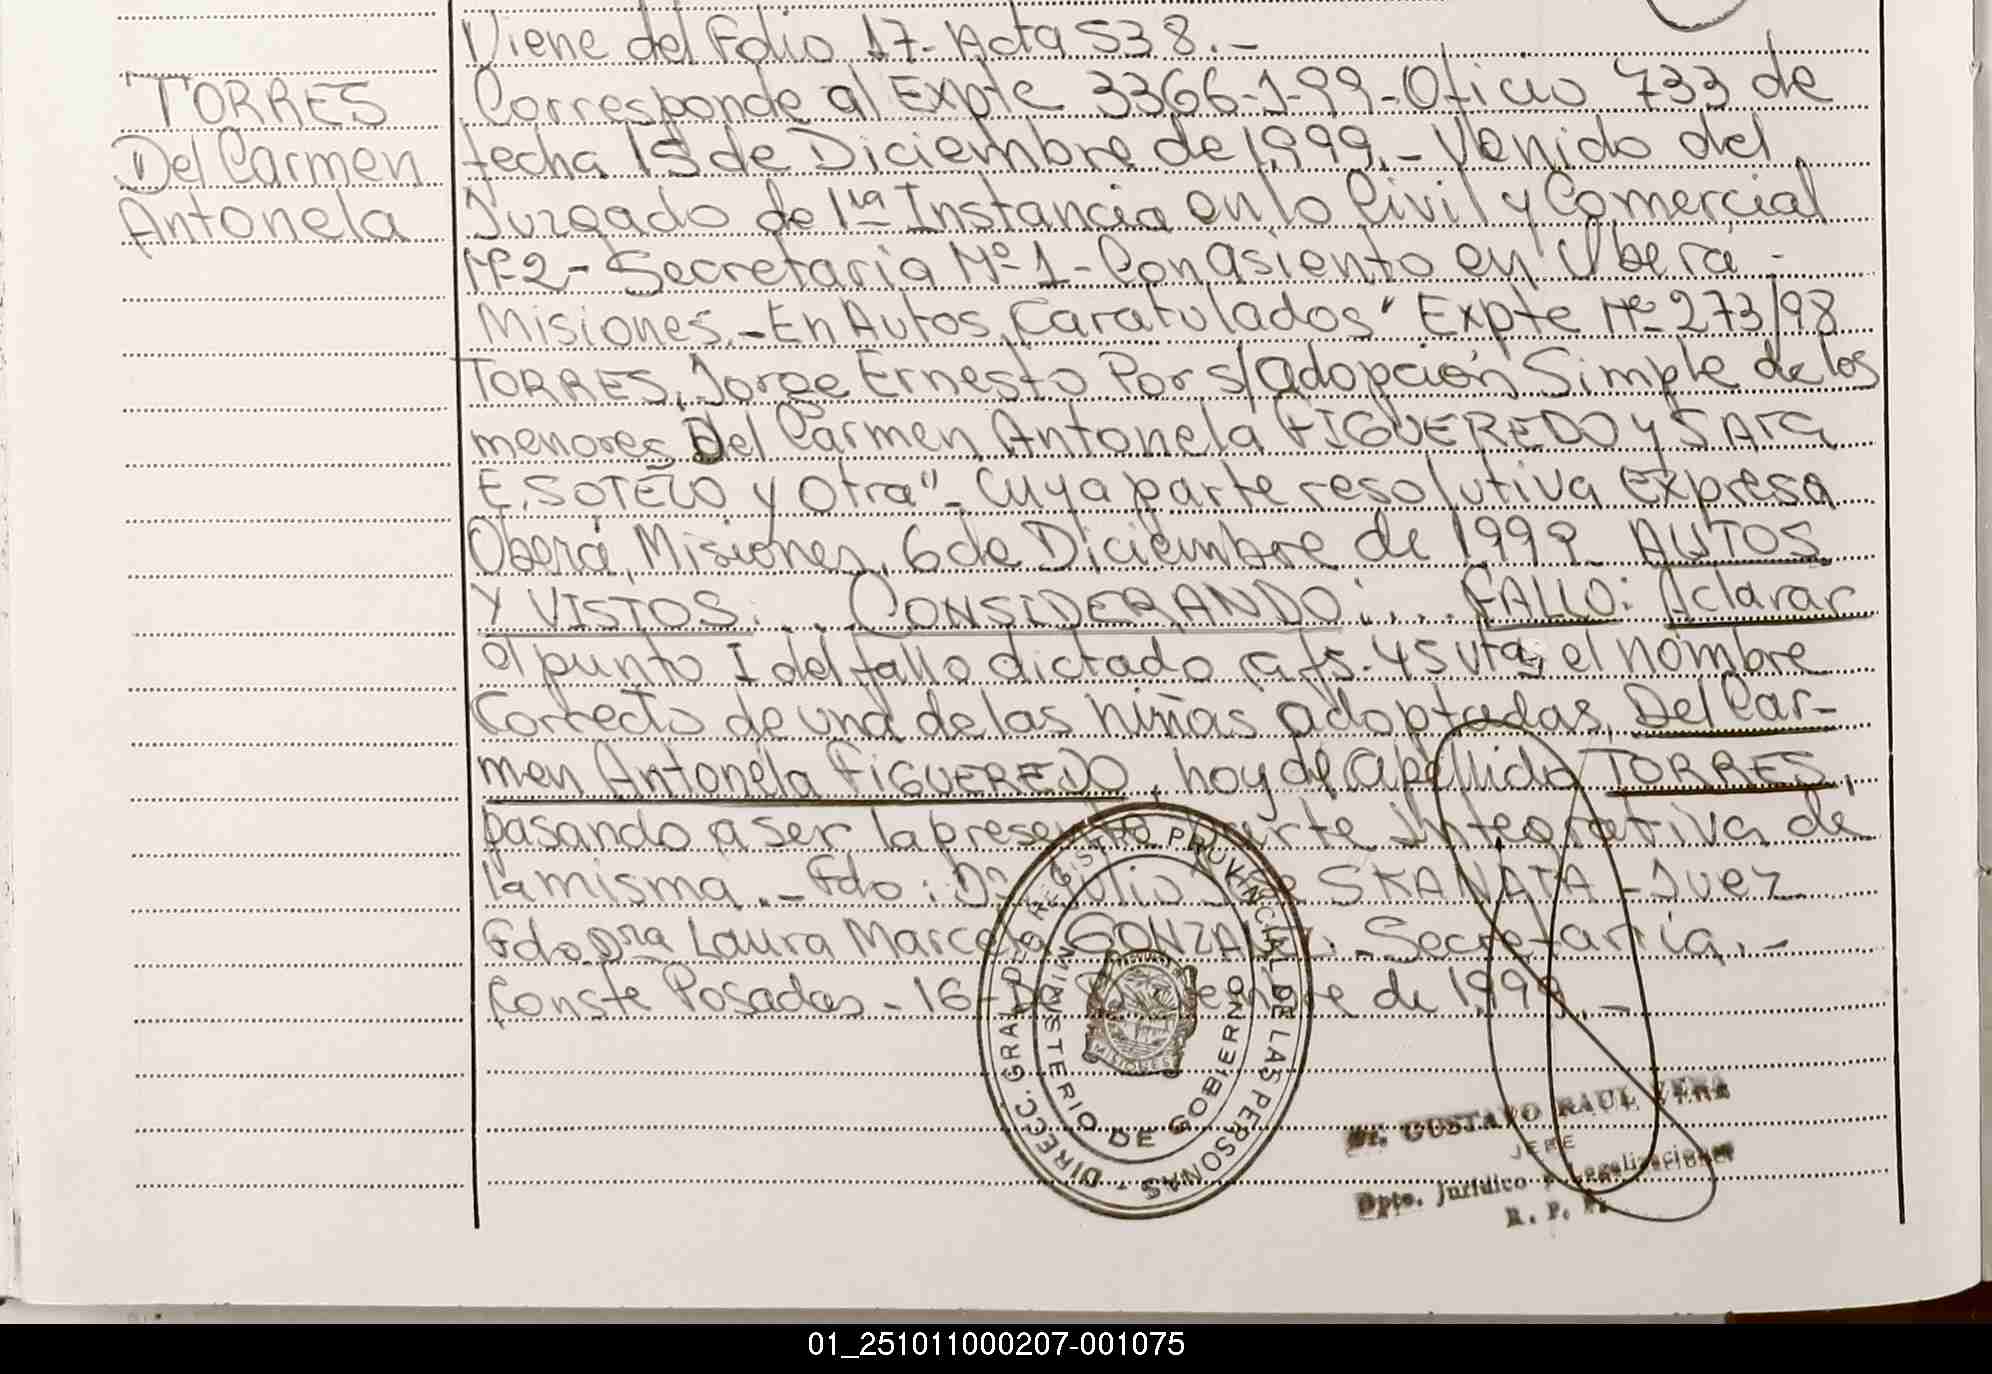 Viene del Folio 17- Acta 538.-
TORRES
Del Carmen
Antonela
Corresponde al Expte 3366-1-99-Oficio 733 de
fecha 15 de Diciembre de 1,999.- Venido del
Juzgado de 1ra Instancia en lo Civil y Comercial
Nº2- Secretaria Nº 1- Con asiento en Oberá -
Misiones.- En Autos Caratulados "Expte Nº 273/98
TORRES, Jorge Ernesto Por s/ adopción Simple de los
menores Del Carmen Antonela FIGUEREDO y SARA
E. SOTELO y Otra"- Cuya parte resolutiva expresa
Oberá, Misiones, 6 de Diciembre de 1999 AUTOS
Y VISTOS:... CONSIDERANDO:... FALLO: Aclarar
el punto I del fallo dictado a fs. 45 vta, el nombre
Correcto de una de las niñas adoptadas, Del Car-
men Antonela FIGUEREDO, hoy de apellido TORRES,
pasando a ser la presente parte Integrativa de
la misma.- Fdo: Dr. Julio SKANATA - Juez
Fdo Dra Laura Marcela GONZALEZ.- Secretaria.-
Conste Posadas - 16 - De Diciembre de 1,999.-
DIRECC. GRAL. DE REGISTRO PROVINCIAL DE LAS PERSONAS -
MINISTERIO DE GOBIERNO
MISIONES
Dr. GUSTAVO RAUL VERA
JEFE
Dpto. Jurídico y Legalizaciones
R. P. P.
01_251011000207-001075